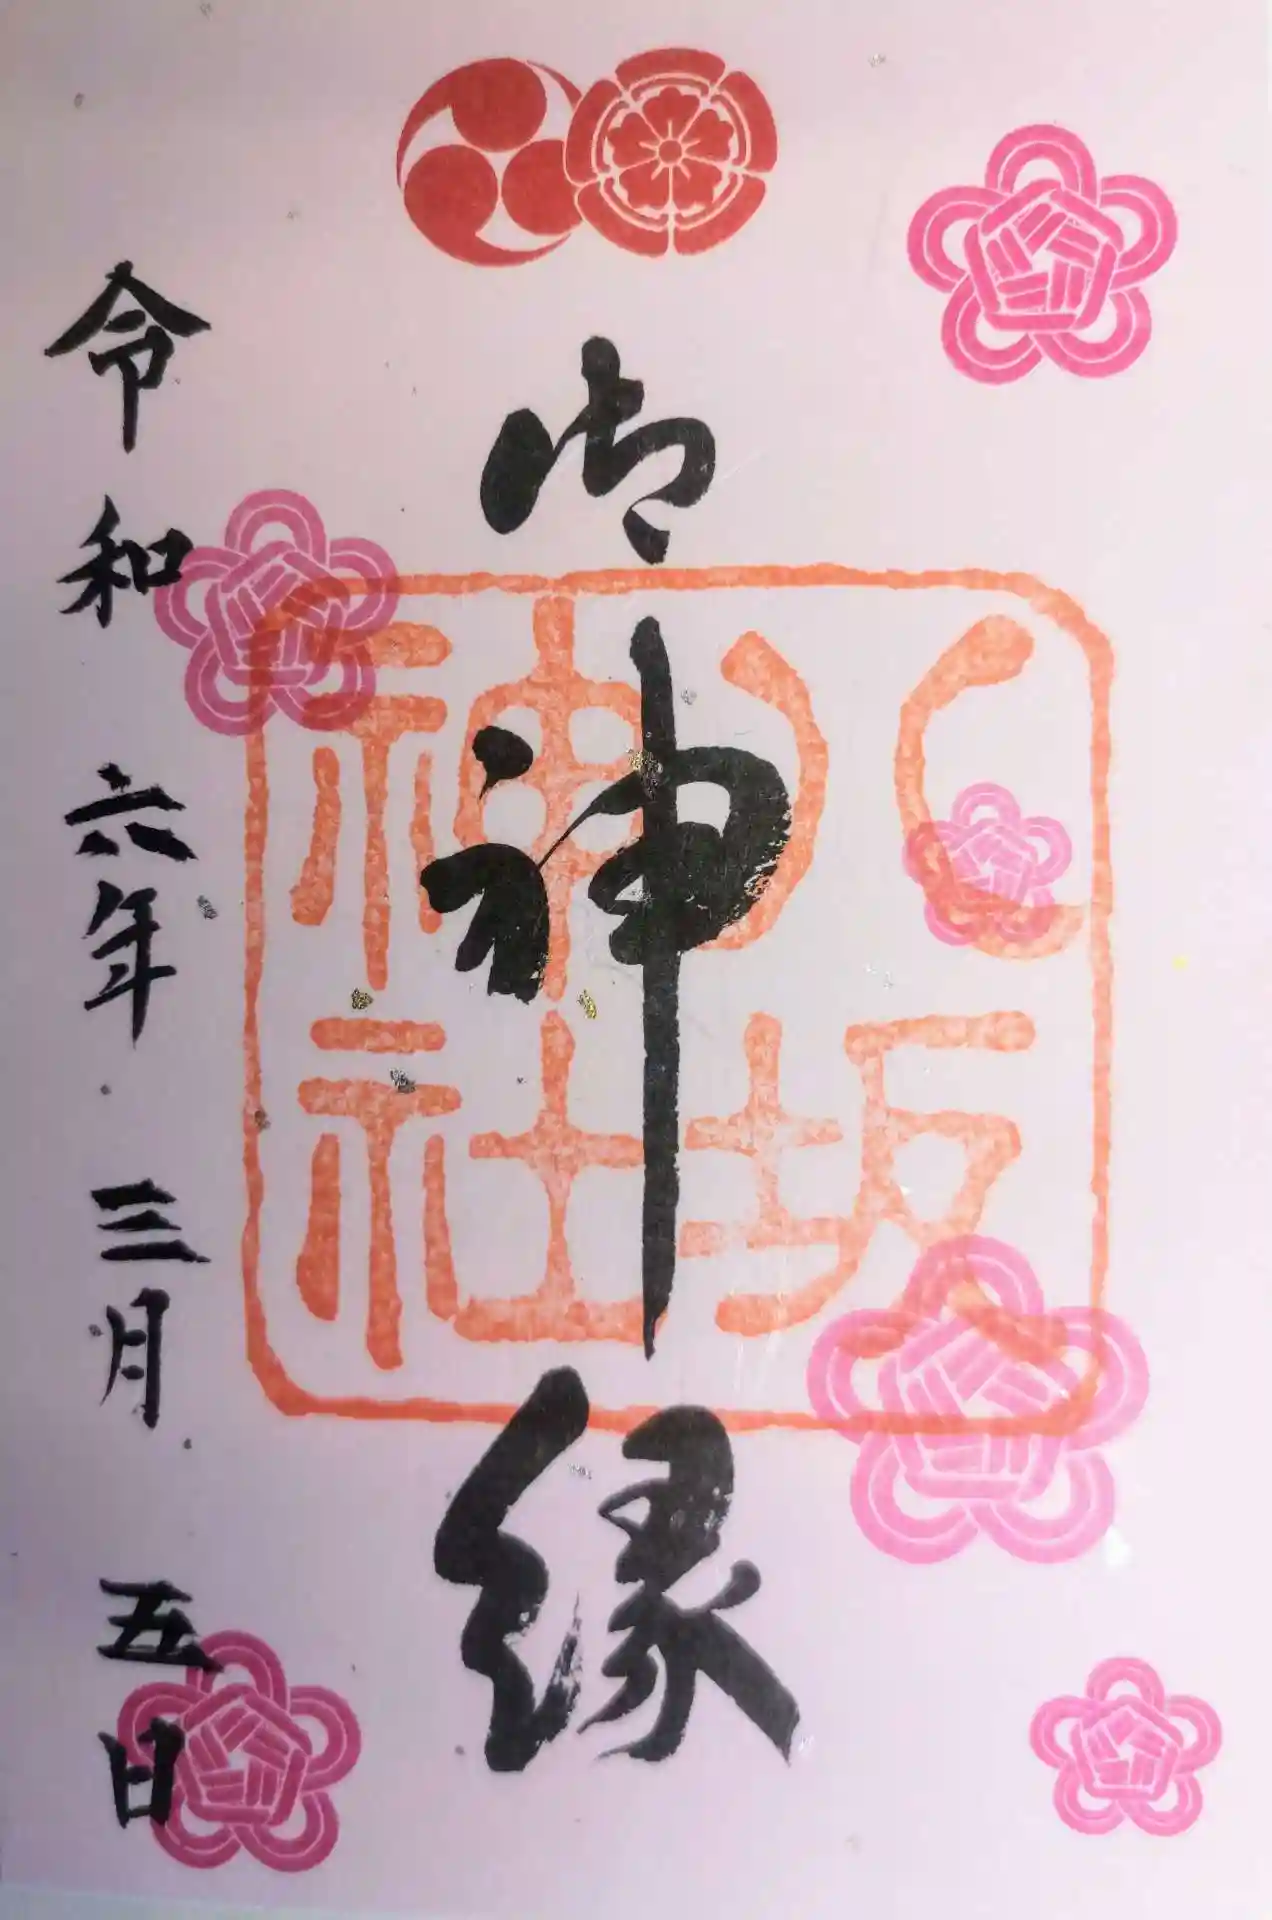 御神縁
八坂神社
令和六年三月五日